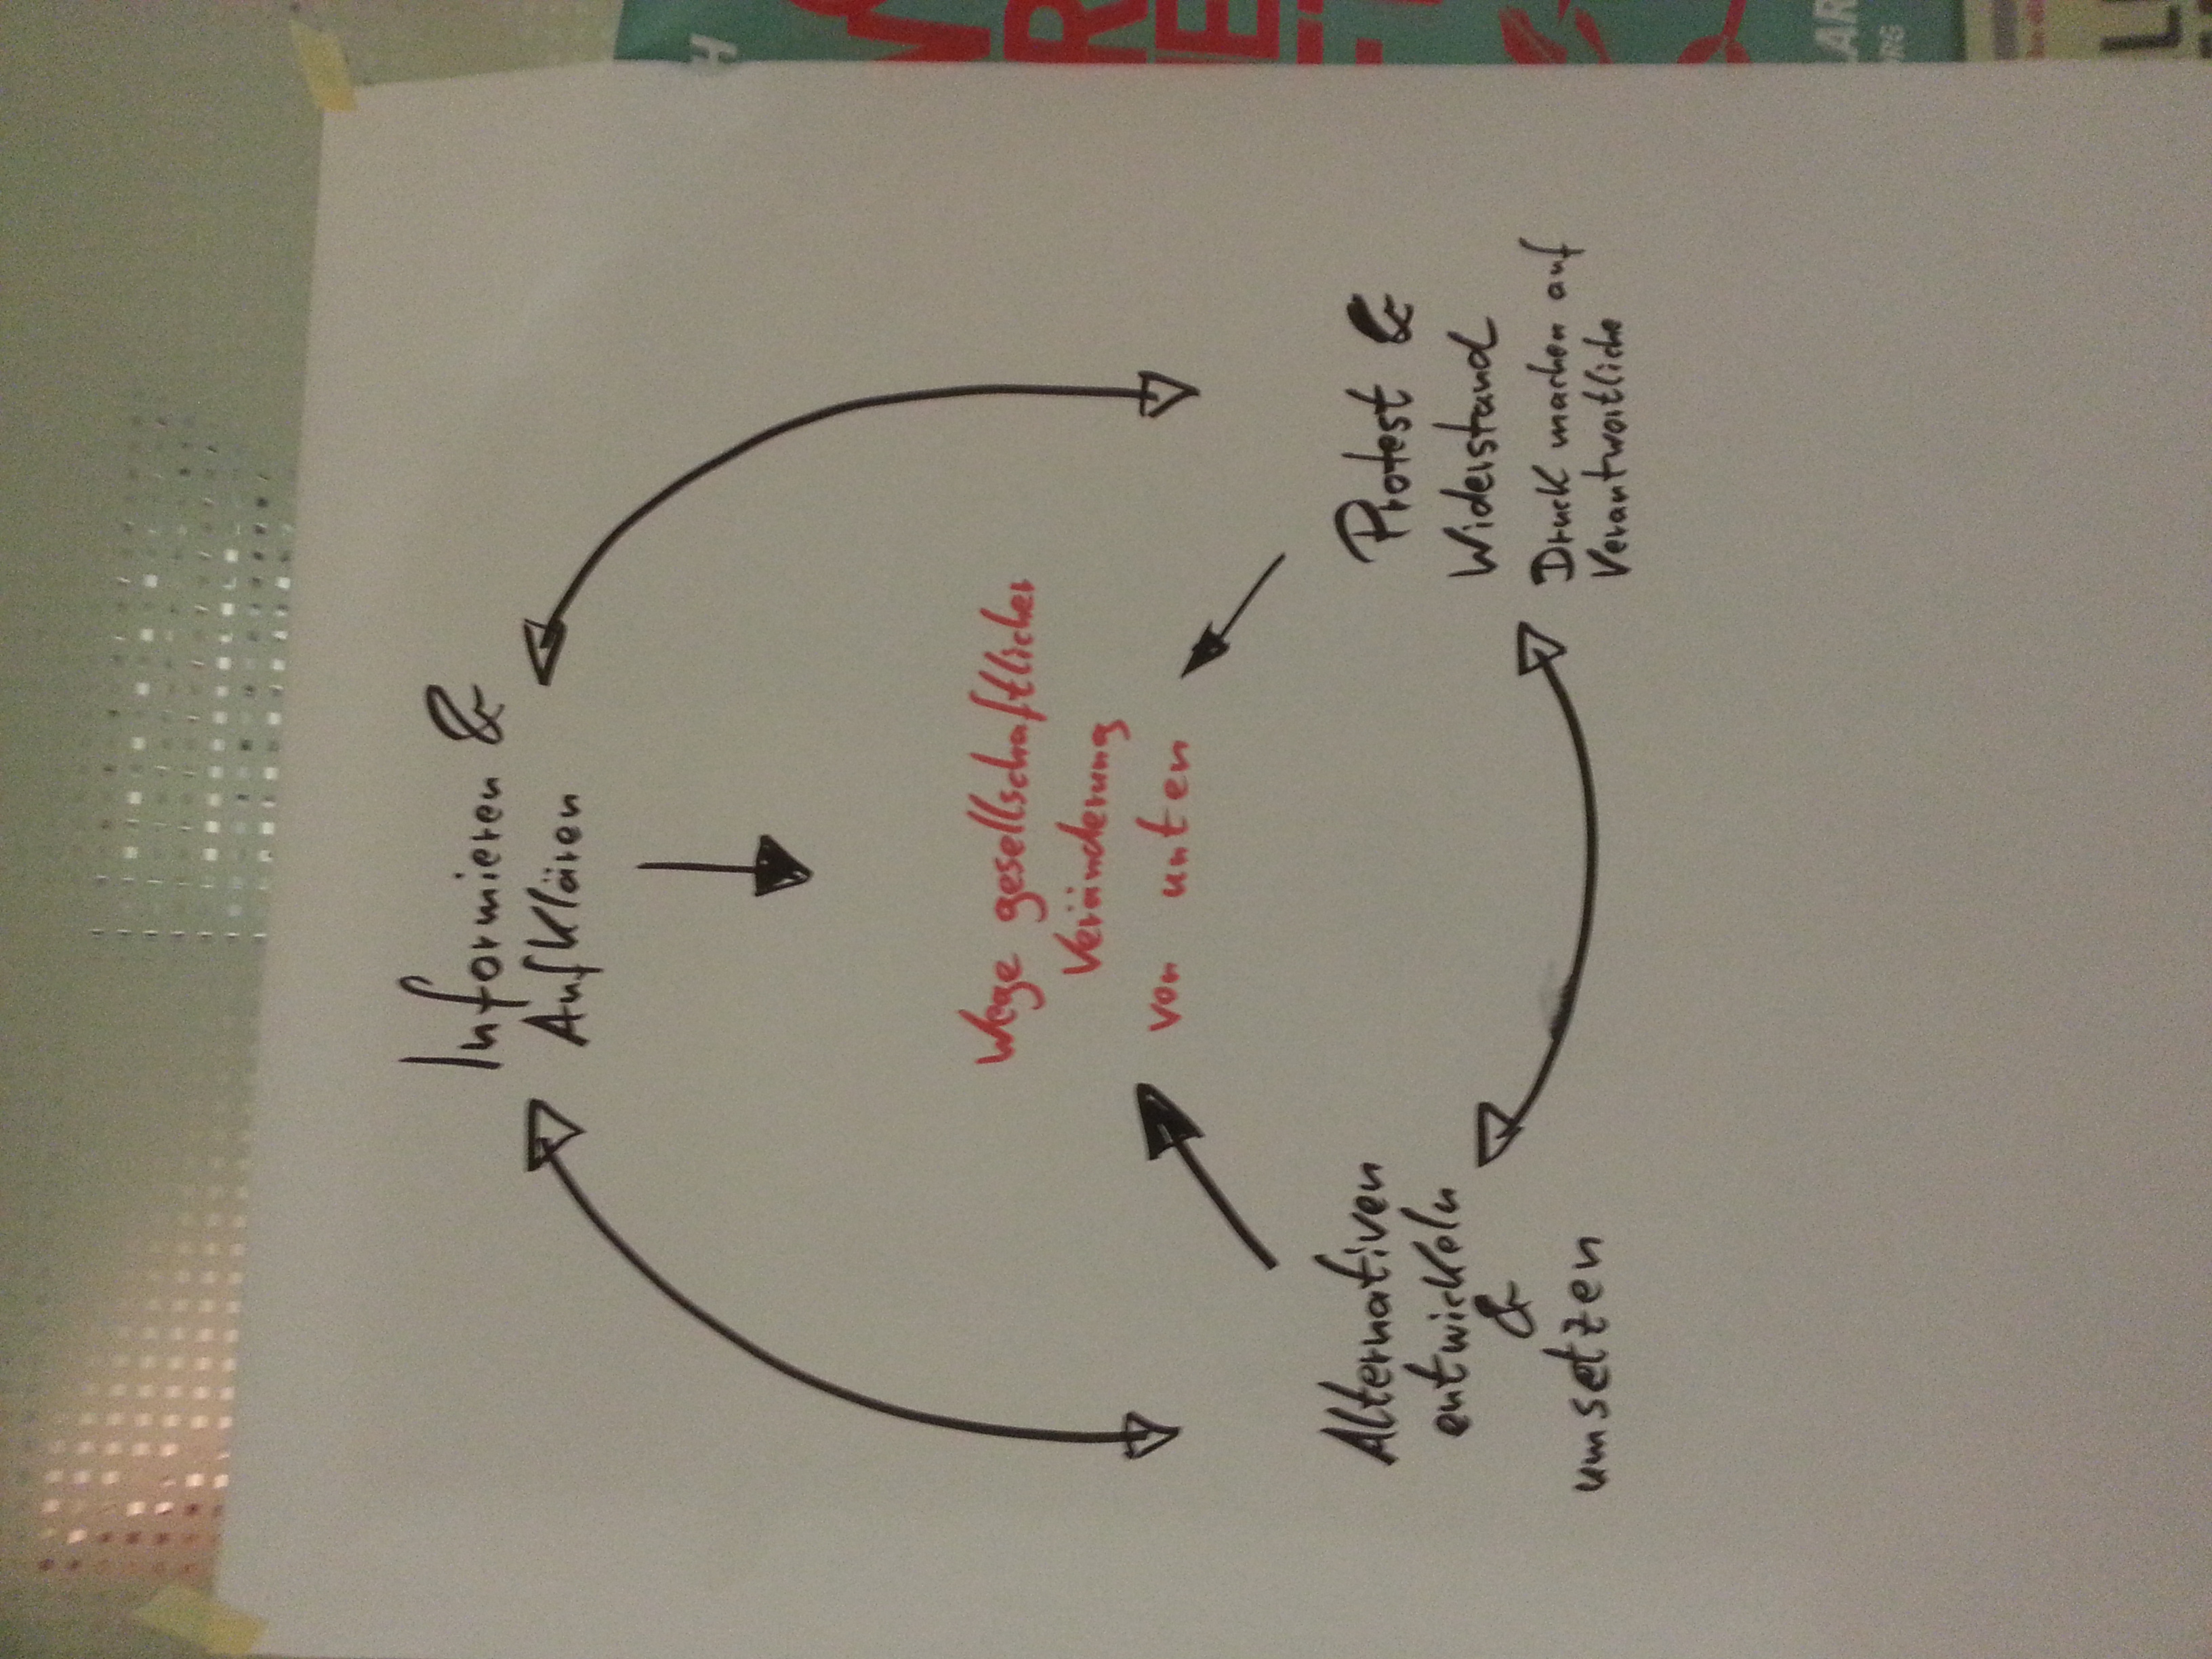 Informieren &
Aufklären
Wege gesellschaftlicher
Veränderung
von unten
Alternativen
entwickeln
&
umsetzen
Protest &
Widerstand
Druck machen auf
Verantwortliche